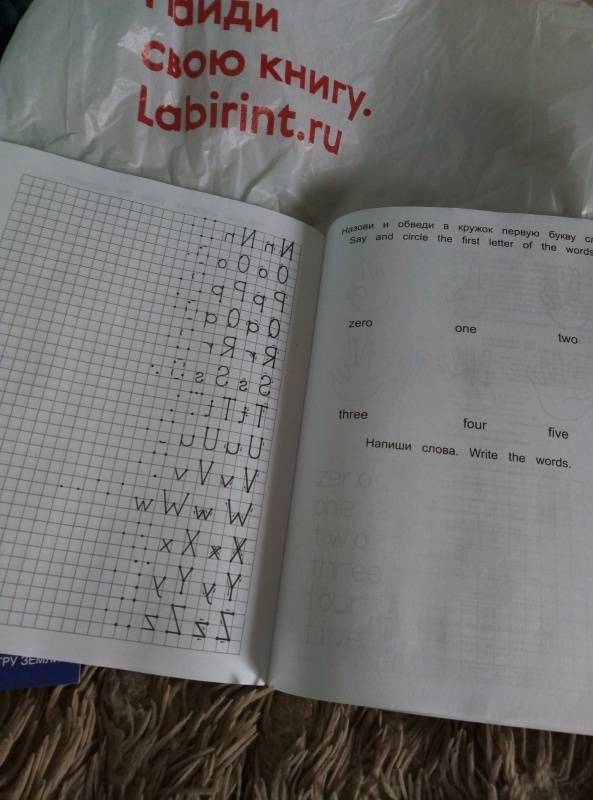 Найди
свою книгу.
Labirint.ru
N n N n
O o O o
P p P p
Q q Q q
R r R r
S s S s
T t T t
U u U u
V v V v
W w W w
X x X x
Y y Y y
Z z Z z
Назови и обведи в кружок первую букву
Say and circle the first letter of the words
zero one two
three four five
Напиши слова. Write the words.
zero
one
two
three
four
five